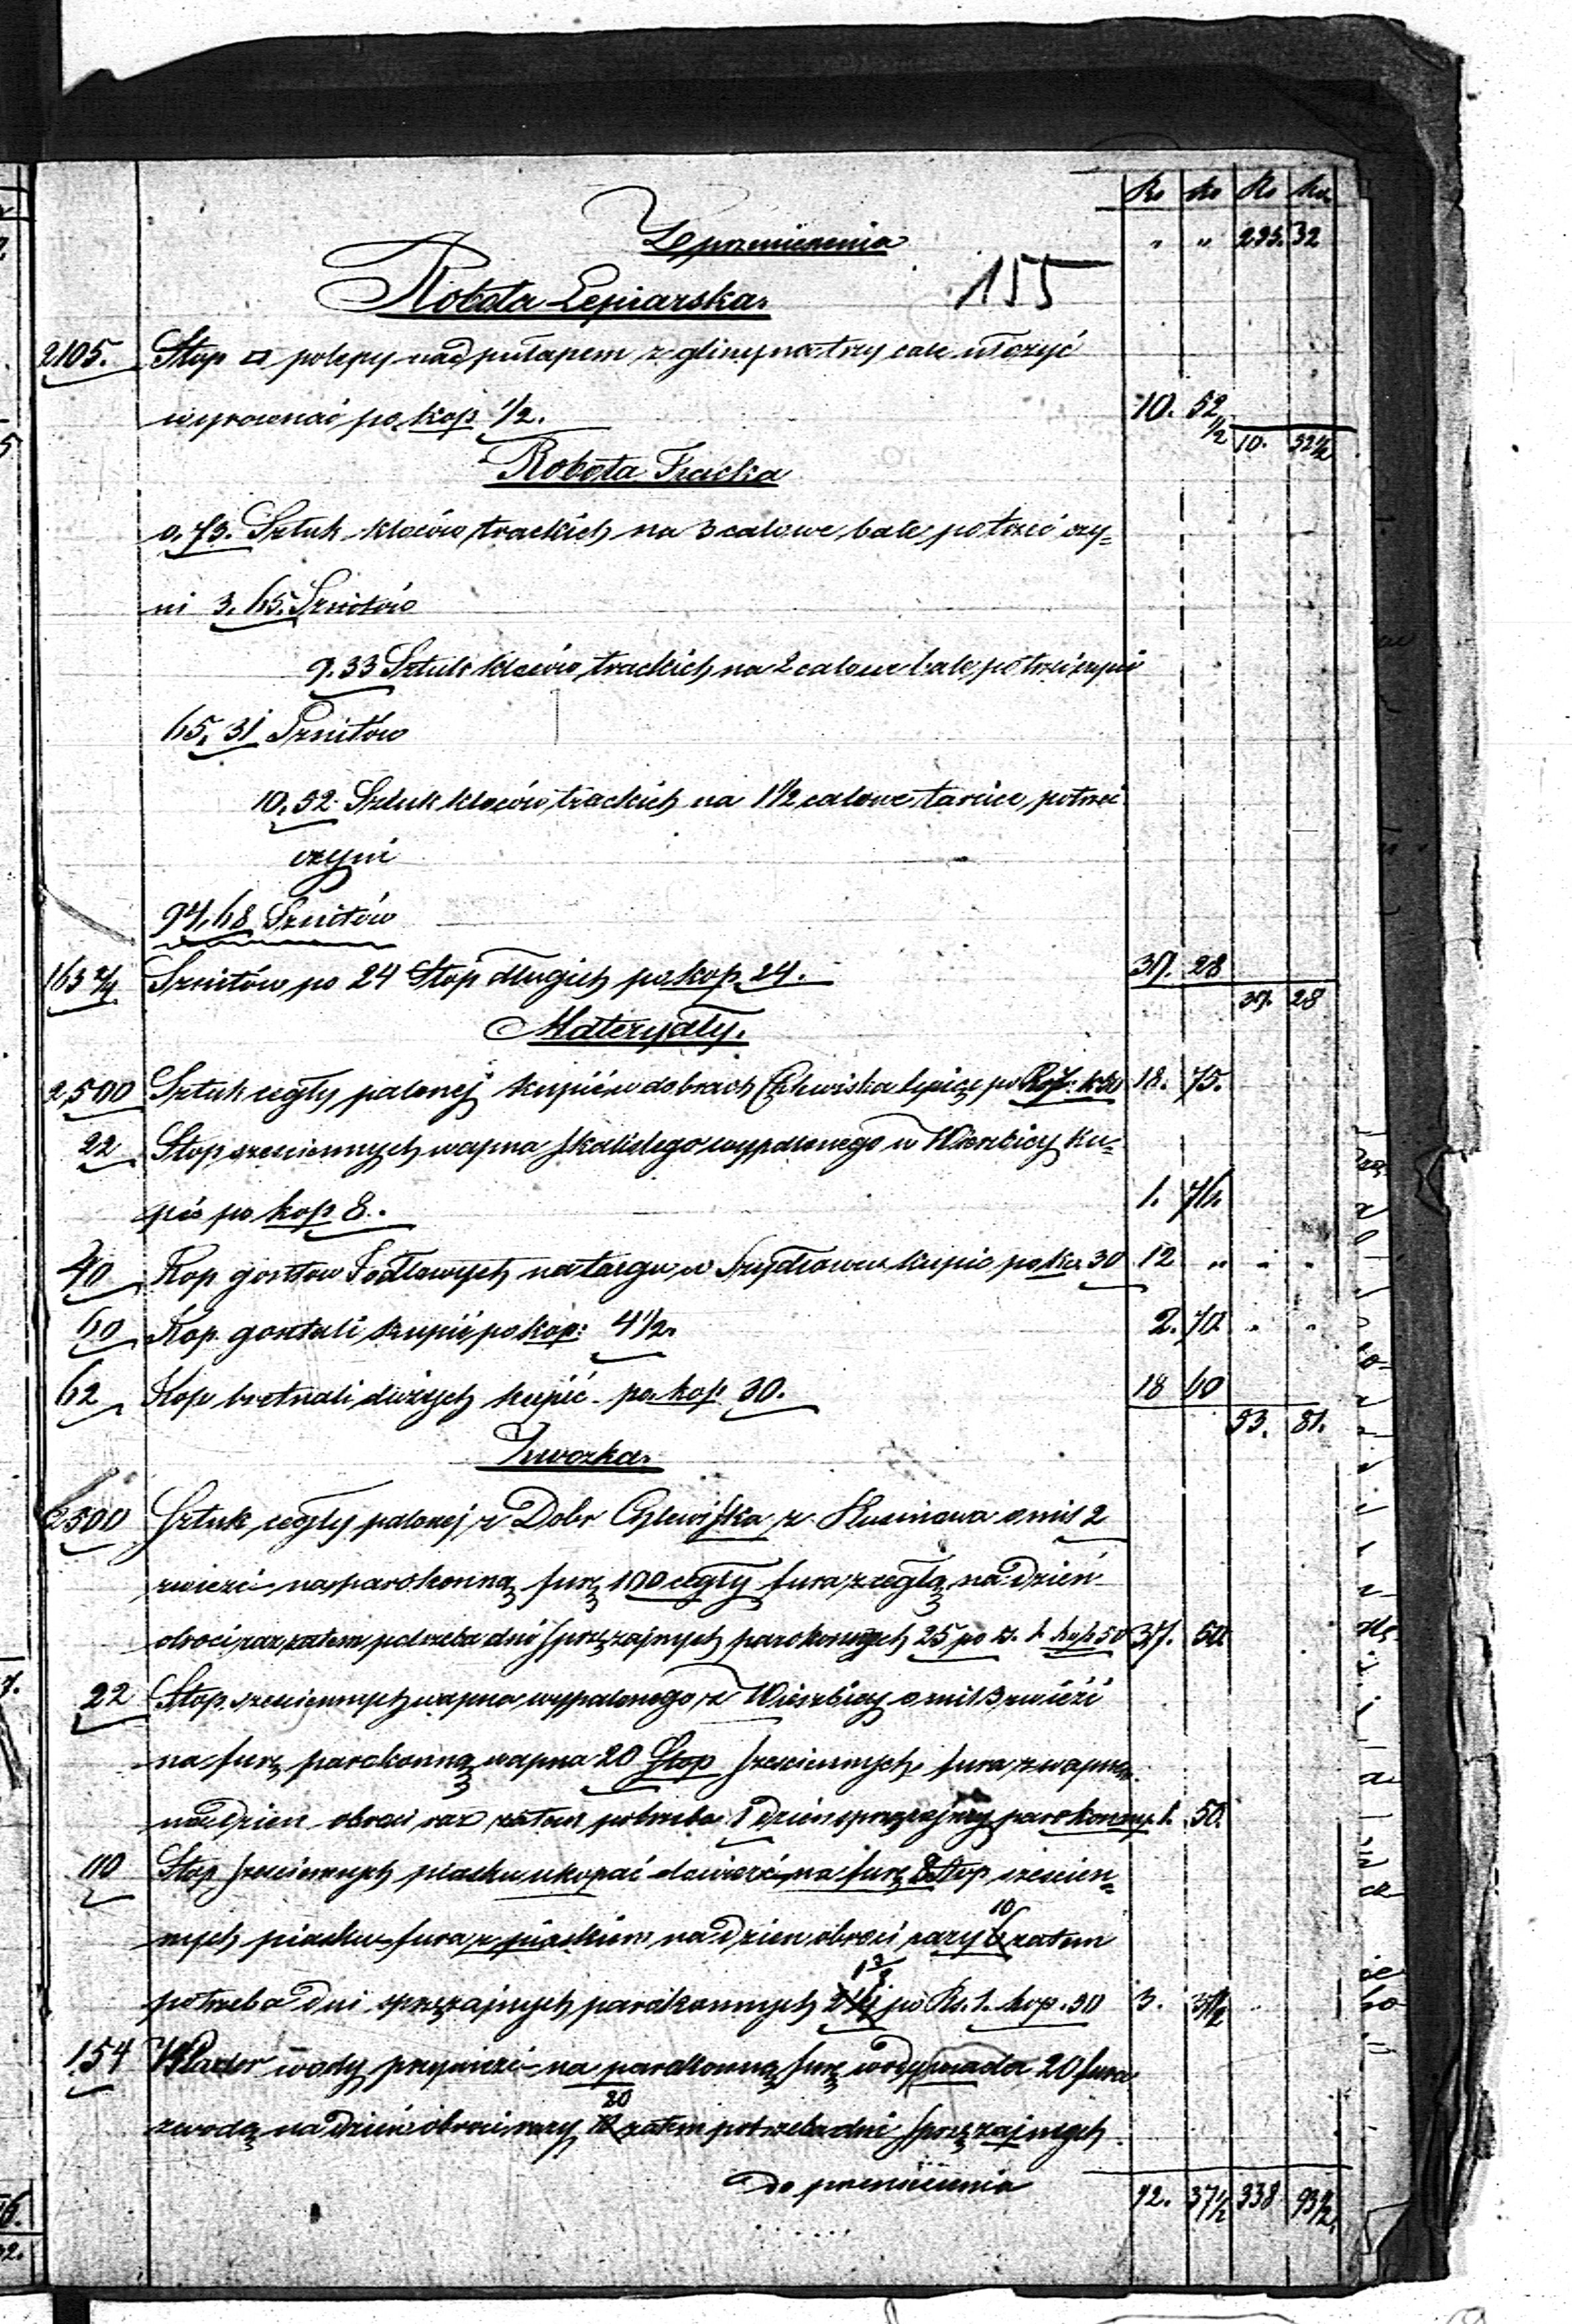 Rs ko Rs ko
Z przeniesienia " " 235. 32
155
Robota Lepiarska.
2105. Stop □ polepy nad pułapem z gliny na trzy cale ułożyć
wyrownać po kop 1/2. 10. 52 1/2
10. 52 1/2
Robota Tracka
a. 73. Sztuk kloców trackich na 3 calowe bale potrzeć czy=
ni 3. 65. Sznitów
9. 33 Sztuk kloców trackich na 2 calowe bale potrzeć czyni
65. 31 Sznitów
10. 52. Sztuk kloców trackich na 1 1/2 calowe tarcice potrzeć
czyni
94. 68 Sznitów
Sznitów po 24 Stóp długich po kop. 24. 37. 28
37. 28
Materyały.
2500 Sztuk cegły palonej kupić w dobrach Chlewiska po 18. 75.
22 Stop szesciennych wapna skalistego wypalonego w Wierzbicy ku=
pić po kop 8. 1. 76.
40 Kop gontow Jodlowych na targu w Szydłowcu kupic po ko 30 12 " " "
60 Kop gontali kupić po kop: 4 1/2. 2. 70 " "
62 Kop bretnali dużych kupić po kop 30. 18 60
53. 81.
Zwozka.
2500 Sztuk cegły palonej z Dobr Chlewiska z o mil 2
zwieźć na parokonną furę 100 cegły fura z cegłą na dzień
obroci raz zatem potrzeba dni sprzężajnych parokonnych 25 po rs. 1. kop 50 37. 50
22 Stop szesciennych wapna wypalonego z Wierzbicy o mil 3 zwieźć
na furę parokonną wapna 20 Stop szesciennych fura z wapnem
na dzien obroci raz zatem potrzeba 1 dzień sprzężajny parokonny 1. 50.
110 Stop szesciennych piasku ukopać dowieźć na furę 8 Stop szescien=
10
nych piasku fura z piaskiem na dzien obroci razy 6 zatem
1 3/8
potrzeba dni sprzężajnych parokonnych 2 1/4 po Rs. 1. kop. 50 3. 37 1/2
154 Wiader wody przywieźć na parokonną furę wody wiader 20 fura
20
z wodą na dzień obroci razy zatem potrzeba dni sprzężajnych
Do przeniesienia 92. 37 1/2 338 93 1/2.